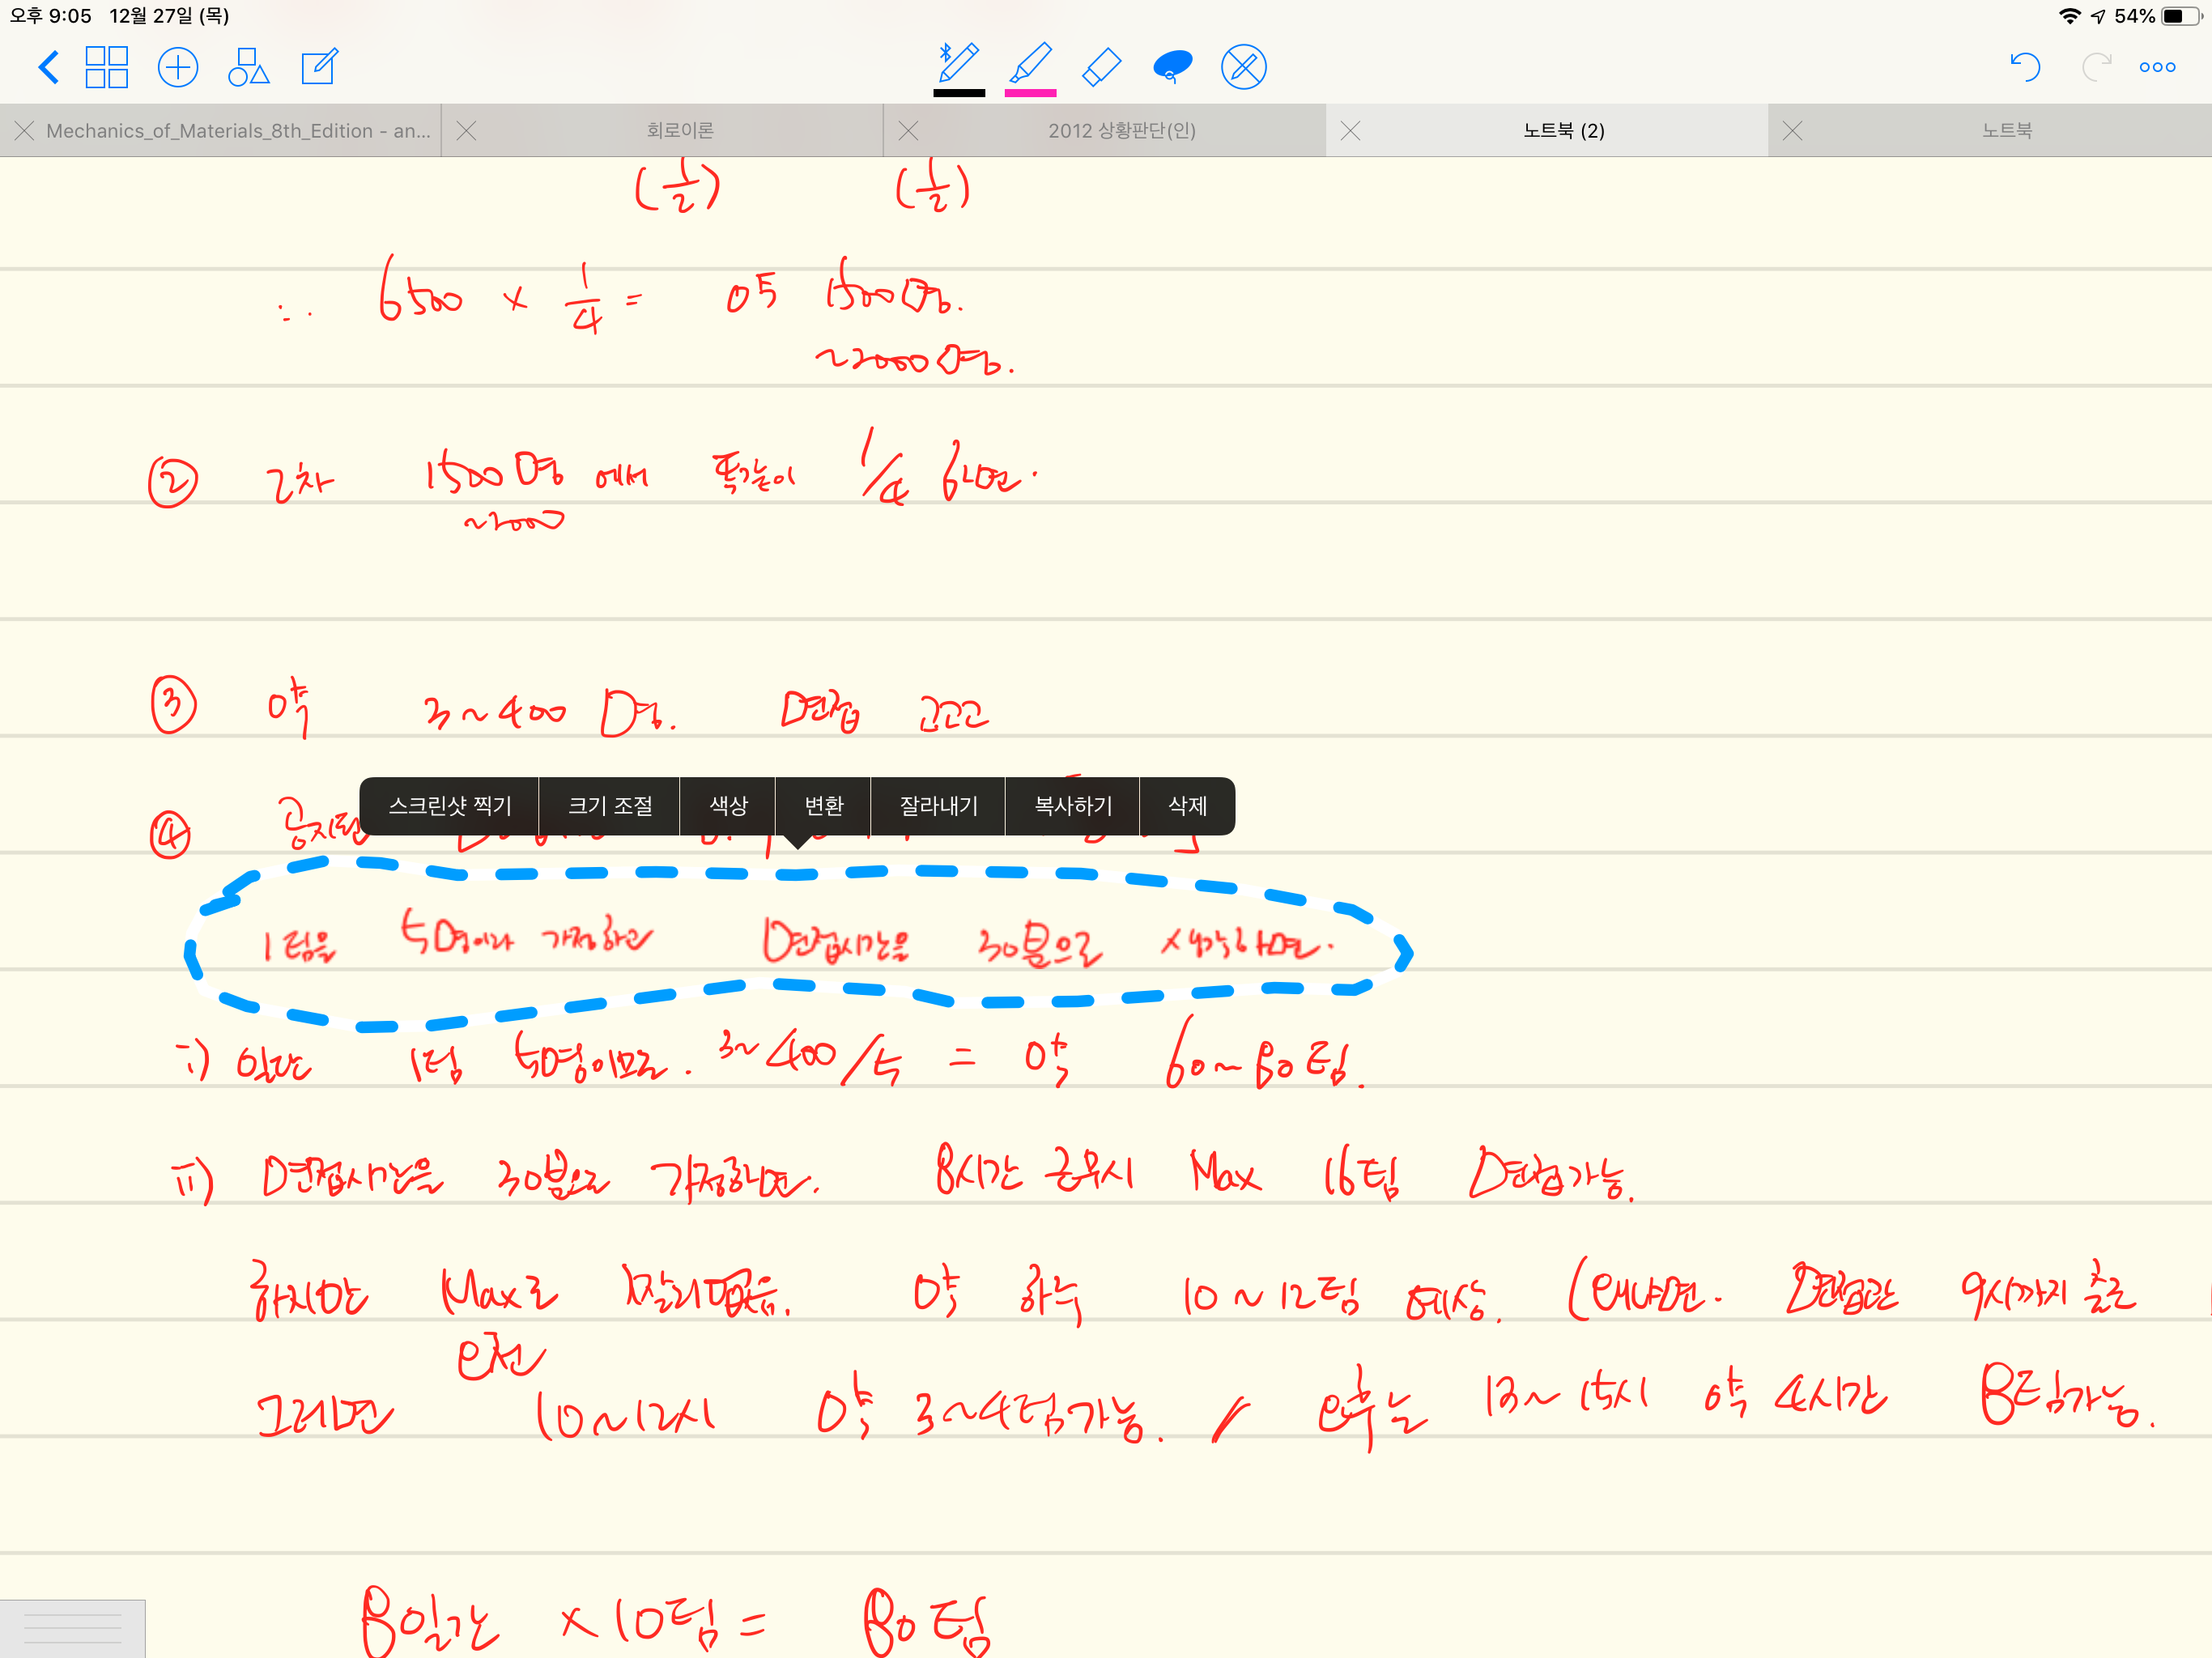 오후 9:05 12월 27일 (목) 54%
Mechanics_of_Materials_8th_Edition - an... 회로이론 2012 상황판단(인) 노트북 (2) 노트북
(1/2) (1/2)
∴ 6500 × 1/4 = 약 1500명.
~2000명.
② 2차 1500명에서 똑같이 1/4 하면.
~2000
③ 약 3~400명. 면접
스크린샷 찍기 크기 조절 색상 변환 잘라내기 복사하기 삭제
④
1팀을 5명이라 가정하고 면접시간을 30분으로 생각하면.
i) 일단 1팀 5명이므로. 3~400/5 = 약 60~80팀.
ii) 면접시간을 30분으로 가정하면. 8시간 근무시 Max 16팀 면접가능.
하지만 Max로 약 하루 10~12팀 예상. (왜냐면. 면접관 9시까지 출근
오전
그러면 10~12시 약 3~4팀가능. / 오후는 13~15시 약 4시간 8팀가능.
8일간 ×10팀 = 80팀